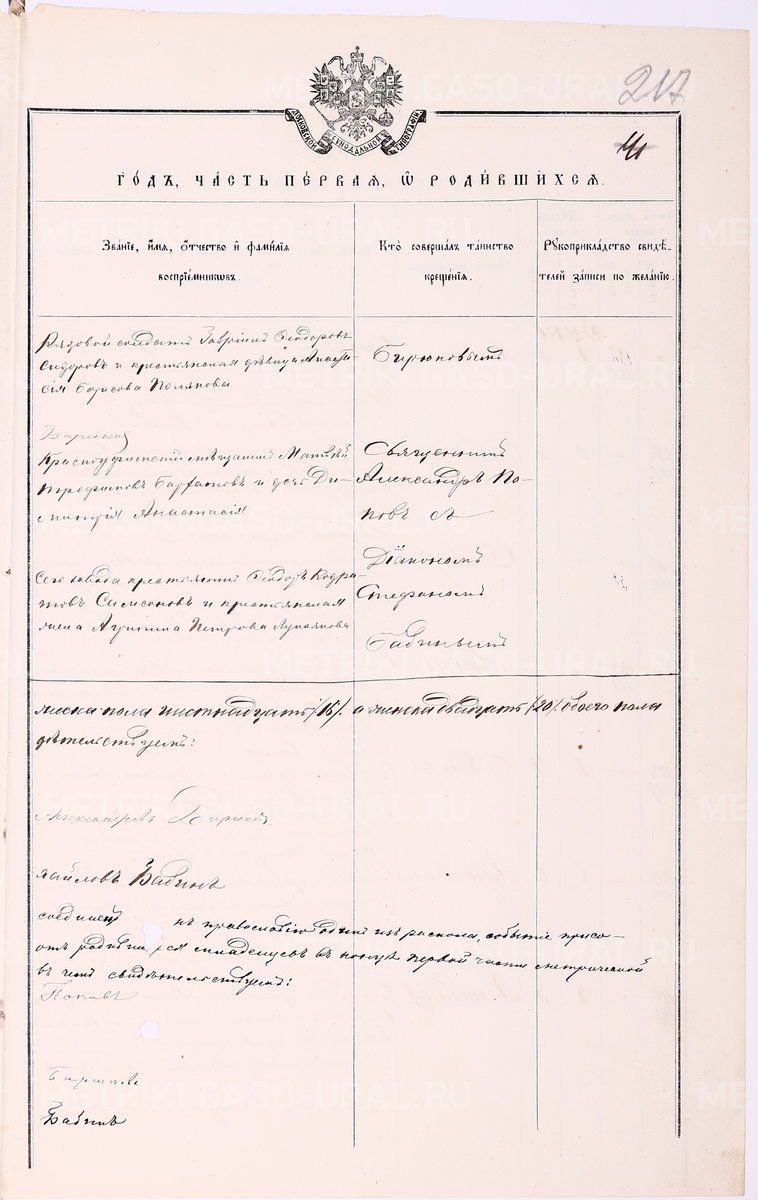 217
МОСКОВСКОЙ СѴНОДАЛЬНОЙ ТИПОГРАФІИ
ГОДЪ, ЧАСТЬ ПЕРВАЯ, Ѡ РОДИВШИХСЯ.
Званіе, имя, отчество и фамилія
воспріемниковъ.
Кто совершалъ таинство
крещенія.
Рукоприкладство свидѣ-
телей записи по желанію.
Рядовой солдатъ Гавріилъ Ѳеодоровъ
Сидоровъ и крестьянская дѣвица Анаста-
сія Борисова Полякова
Бирюковымъ
Красноуфимскій мѣщанинъ Матвѣй
Трофимовъ и дочь Ди-
митрія Анастасія
Священникъ
Александръ По-
повъ съ
Сего завода крестьянинъ Ѳеодоръ Кодра-
товъ Самсоновъ и крестьянская
жена Агрипина Петрова Лукоянова
Діакономъ
Стефаномъ
Бабинымъ
мужска пола шестнадцать /16/. а женска двадцать /20/. обоего пола
дѣтельствуемъ:
Александровъ
хайловъ Бабинъ
соединен къ православію одинъ изъ раскола, событіе присо-
отъ родивши ся младенцевъ въ концѣ первой части метрической
въ чемъ свидѣтельствуемъ:
Поповъ
Бирюковъ
Бабинъ
METRIKI.GASO-URAL.RU